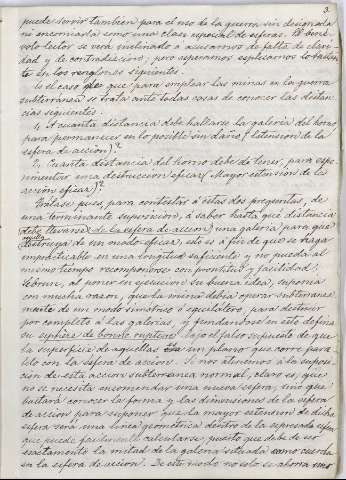 3.
puede servir tambien para el uso de la guerra sin designarla
ni encomiarla como una clase especial de esferas. El bené-
volo lector se verá inclinado á acusarnos de falta de clari-
dad y de contradiccion; pero esperamos esplicarnos lo bastan-
te en los renglones siguientes.
Es el caso que para emplear las minas en la guerra
subterránea se trata ante todas cosas de conocer las distan-
cias siguientes.
1. A cuanta distancia debe hallarse la galeria del horno
para permanecer en lo posible sin daño? (estension de la
esfera de accion)?
2. Cuanta distancia del horno debe de tener, para espe-
rimentar una destruccion eficaz (Mayor estension de la
accion eficaz)?
Trátase pues para contestar á estas dos preguntas, de
una terminante suposicion, á saber hasta qué distancia
debe llevarse (de la esfera de accion) una galeria para que
destruya de un modo eficaz, esto es á fin de que se haga
impracticable en una longitud suficiente y no pueda al
mismo tiempo recomponerse con prontitud y facilidad.
Lebrun, al poner en ejecucion su buena idea, suponia
con mucha razon, que la mina debia operar subterranea-
mente de un modo simétrico ó equilatero, para destruir
por completo á las galerias, y fundandose en esto definia
su sphére de bonne rupture, bajo el falso supuesto de que
la superficie de aquellas era un plano que corre para-
lelo con la esfera de accion. Si nos atenemos á la suposi-
cion de esta accion subterranea normal, claro es, que
no se necesita encomendar una nueva esfera, sino que
bastará conocer la forma y las dimensiones de la esfera
de accion para suponer que la mayor estension de dicha
esfera será una linea geometrica dentro de la espresada esfera
que puede facilmente calcularse, puesto que debe de ser
exactamente la mitad de la galeria situada como cuerda
en la esfera de accion. De este modo no solo se ahorra uno